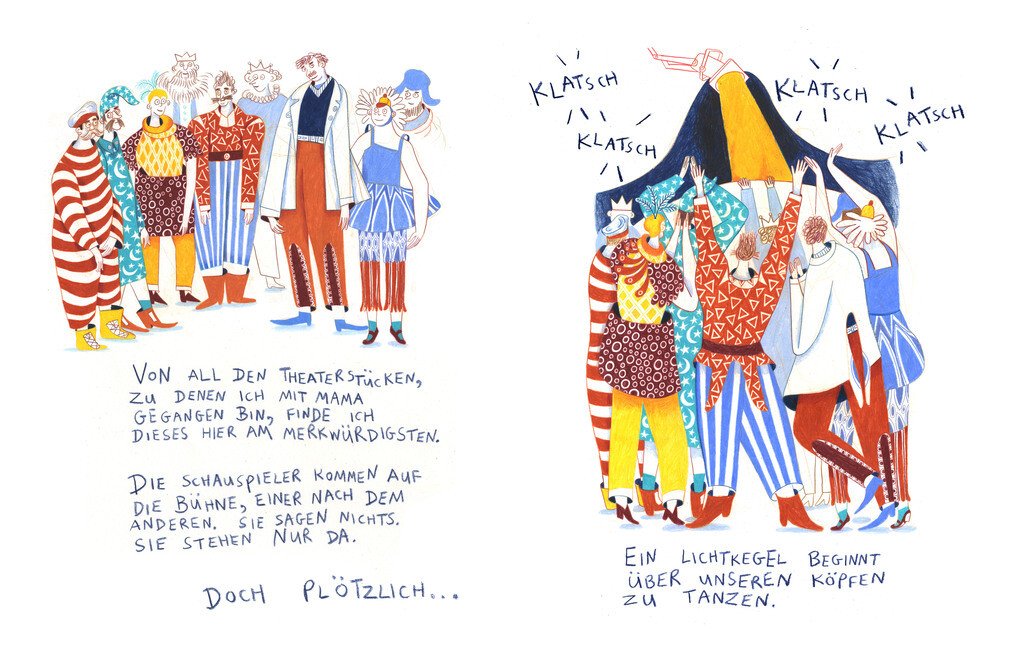 VON ALL DEN THEATERSTÜCKEN,
ZU DENEN ICH MIT MAMA
GEGANGEN BIN, FINDE ICH
DIESES HIER AM MERKWÜRDIGSTEN.
DIE SCHAUSPIELER KOMMEN AUF
DIE BÜHNE, EINER NACH DEM
ANDEREN. SIE SAGEN NICHTS.
SIE STEHEN NUR DA.
DOCH PLÖTZLICH...
KLATSCH
KLATSCH
KLATSCH
KLATSCH
EIN LICHTKEGEL BEGINNT
ÜBER UNSEREN KÖPFEN
ZU TANZEN.